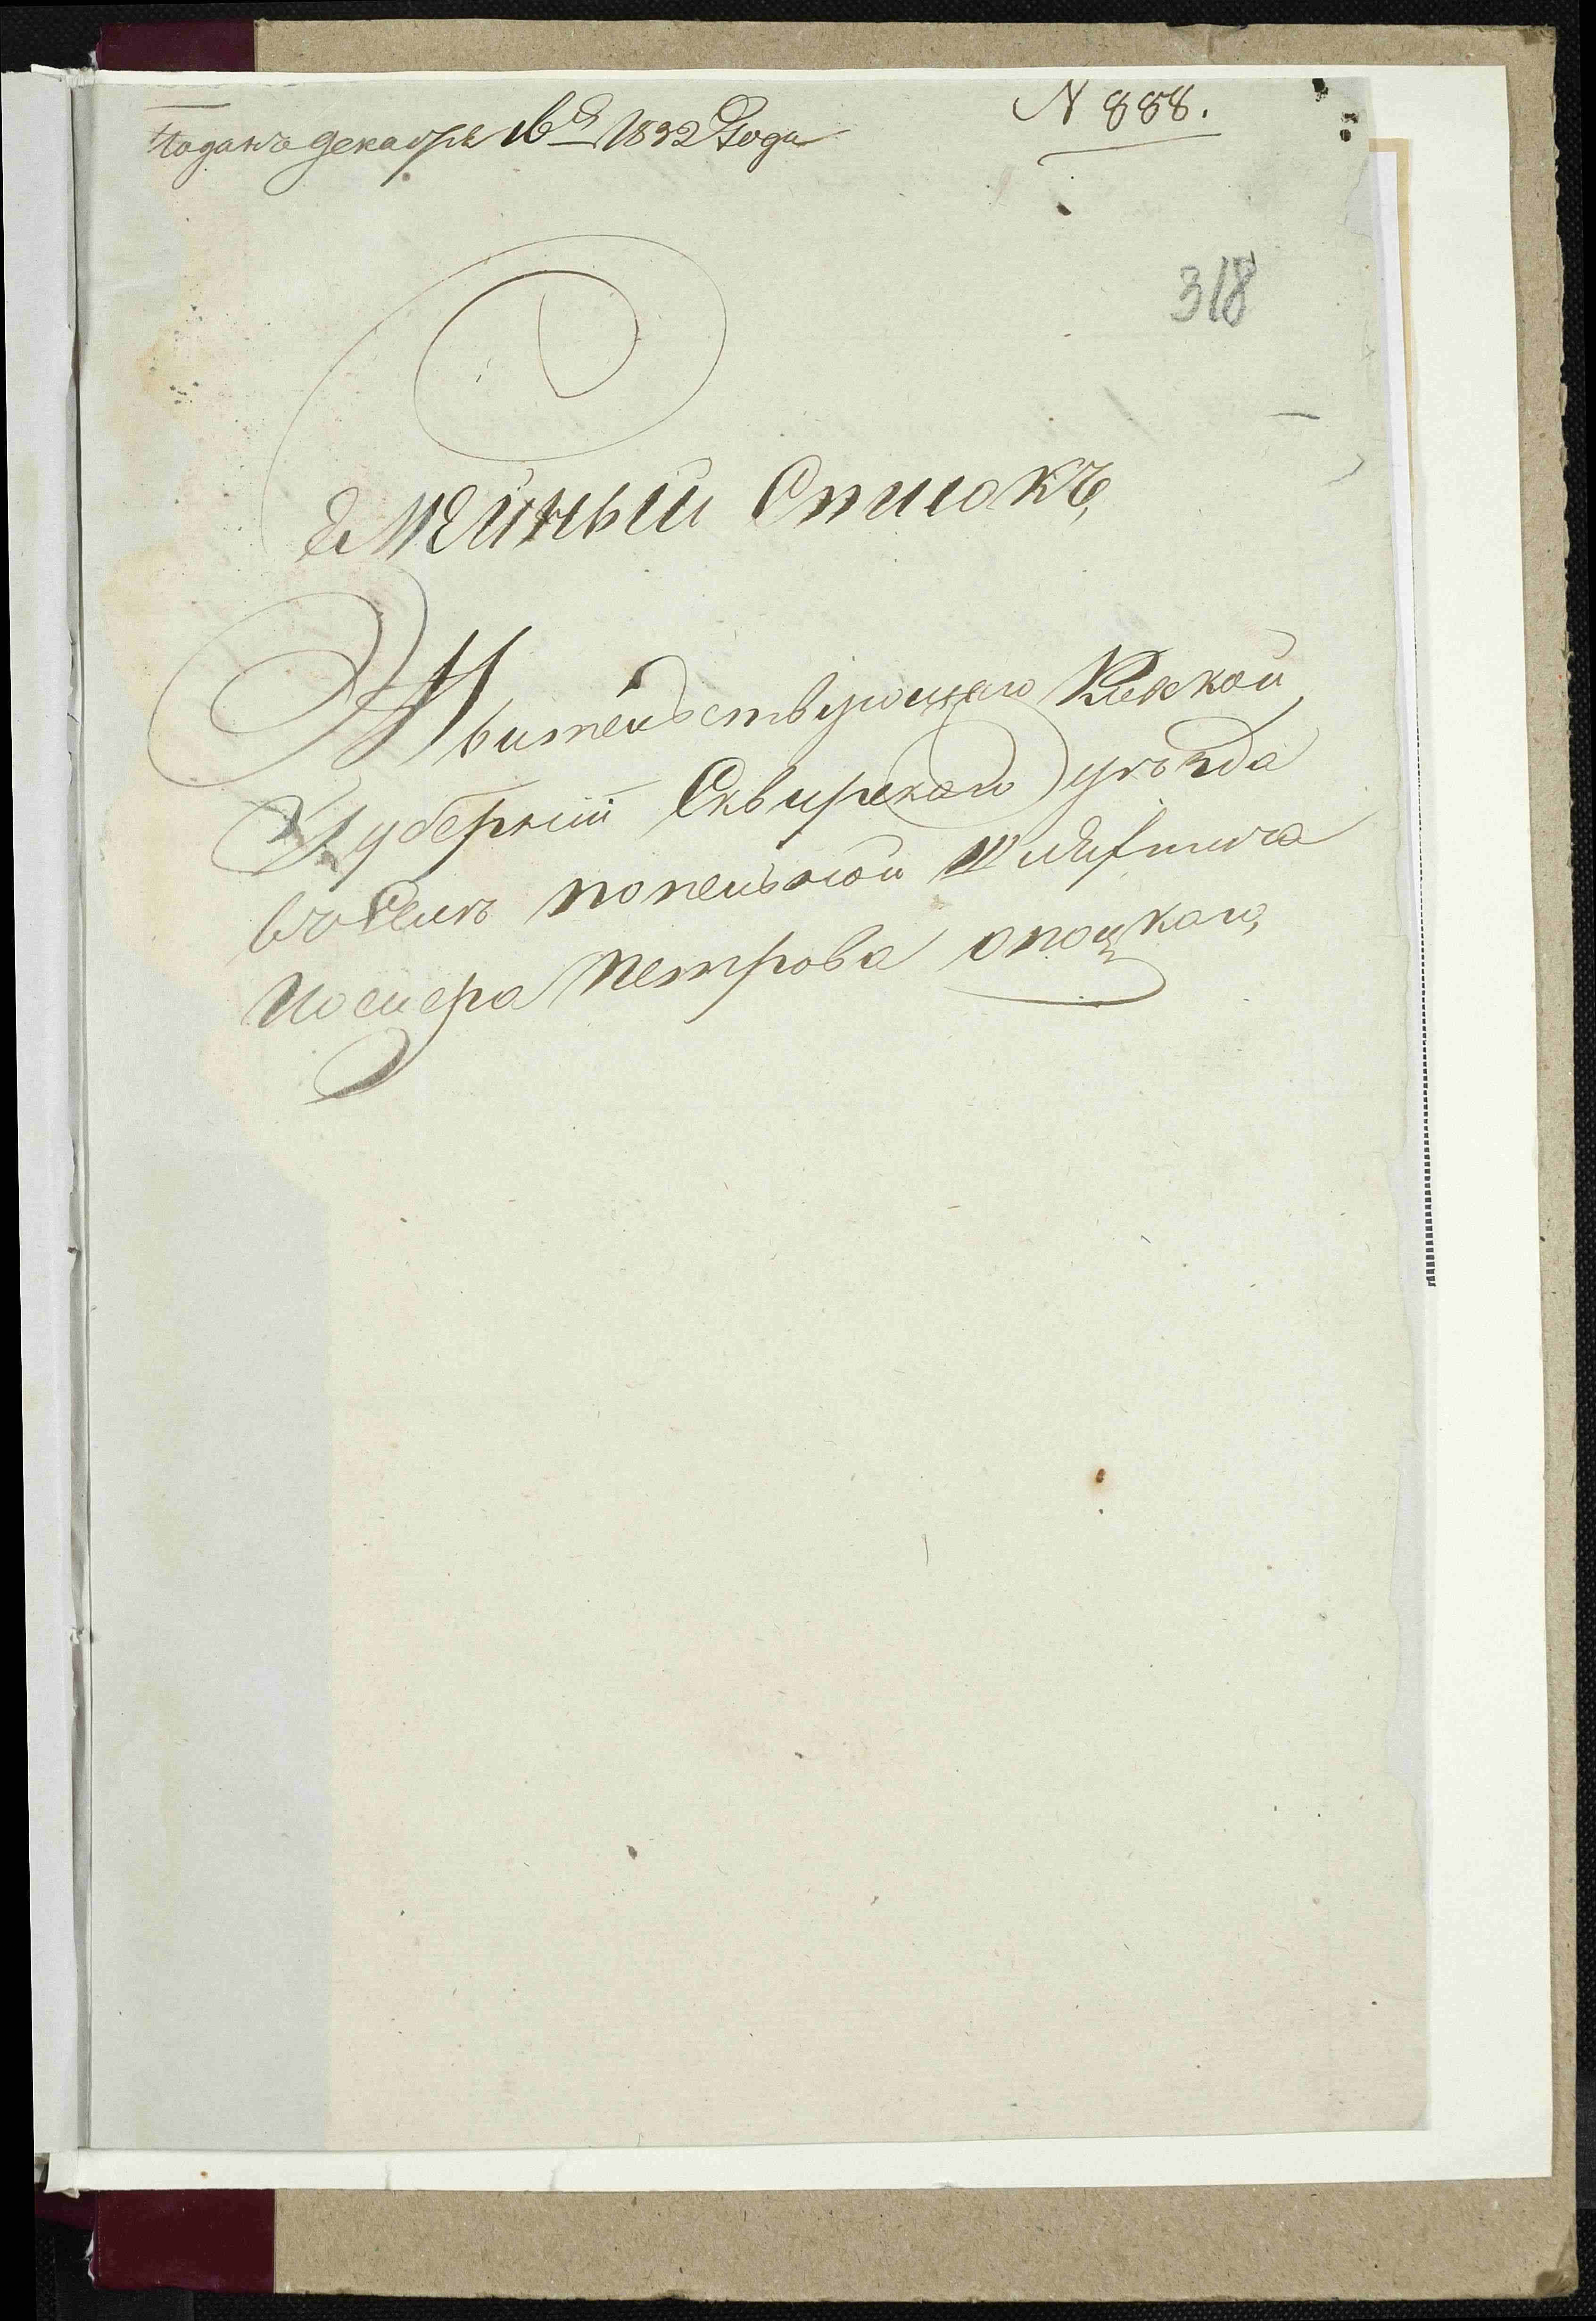 Поданъ декабря 16го 1832 Года
N 888.
318
Семейный Списокъ,
Жительствующаго Киевской
Губернии Сквирскаго уѣзда
въ Селѣ попельной Шляхтича
Иосифа Петрова опоцкаго,